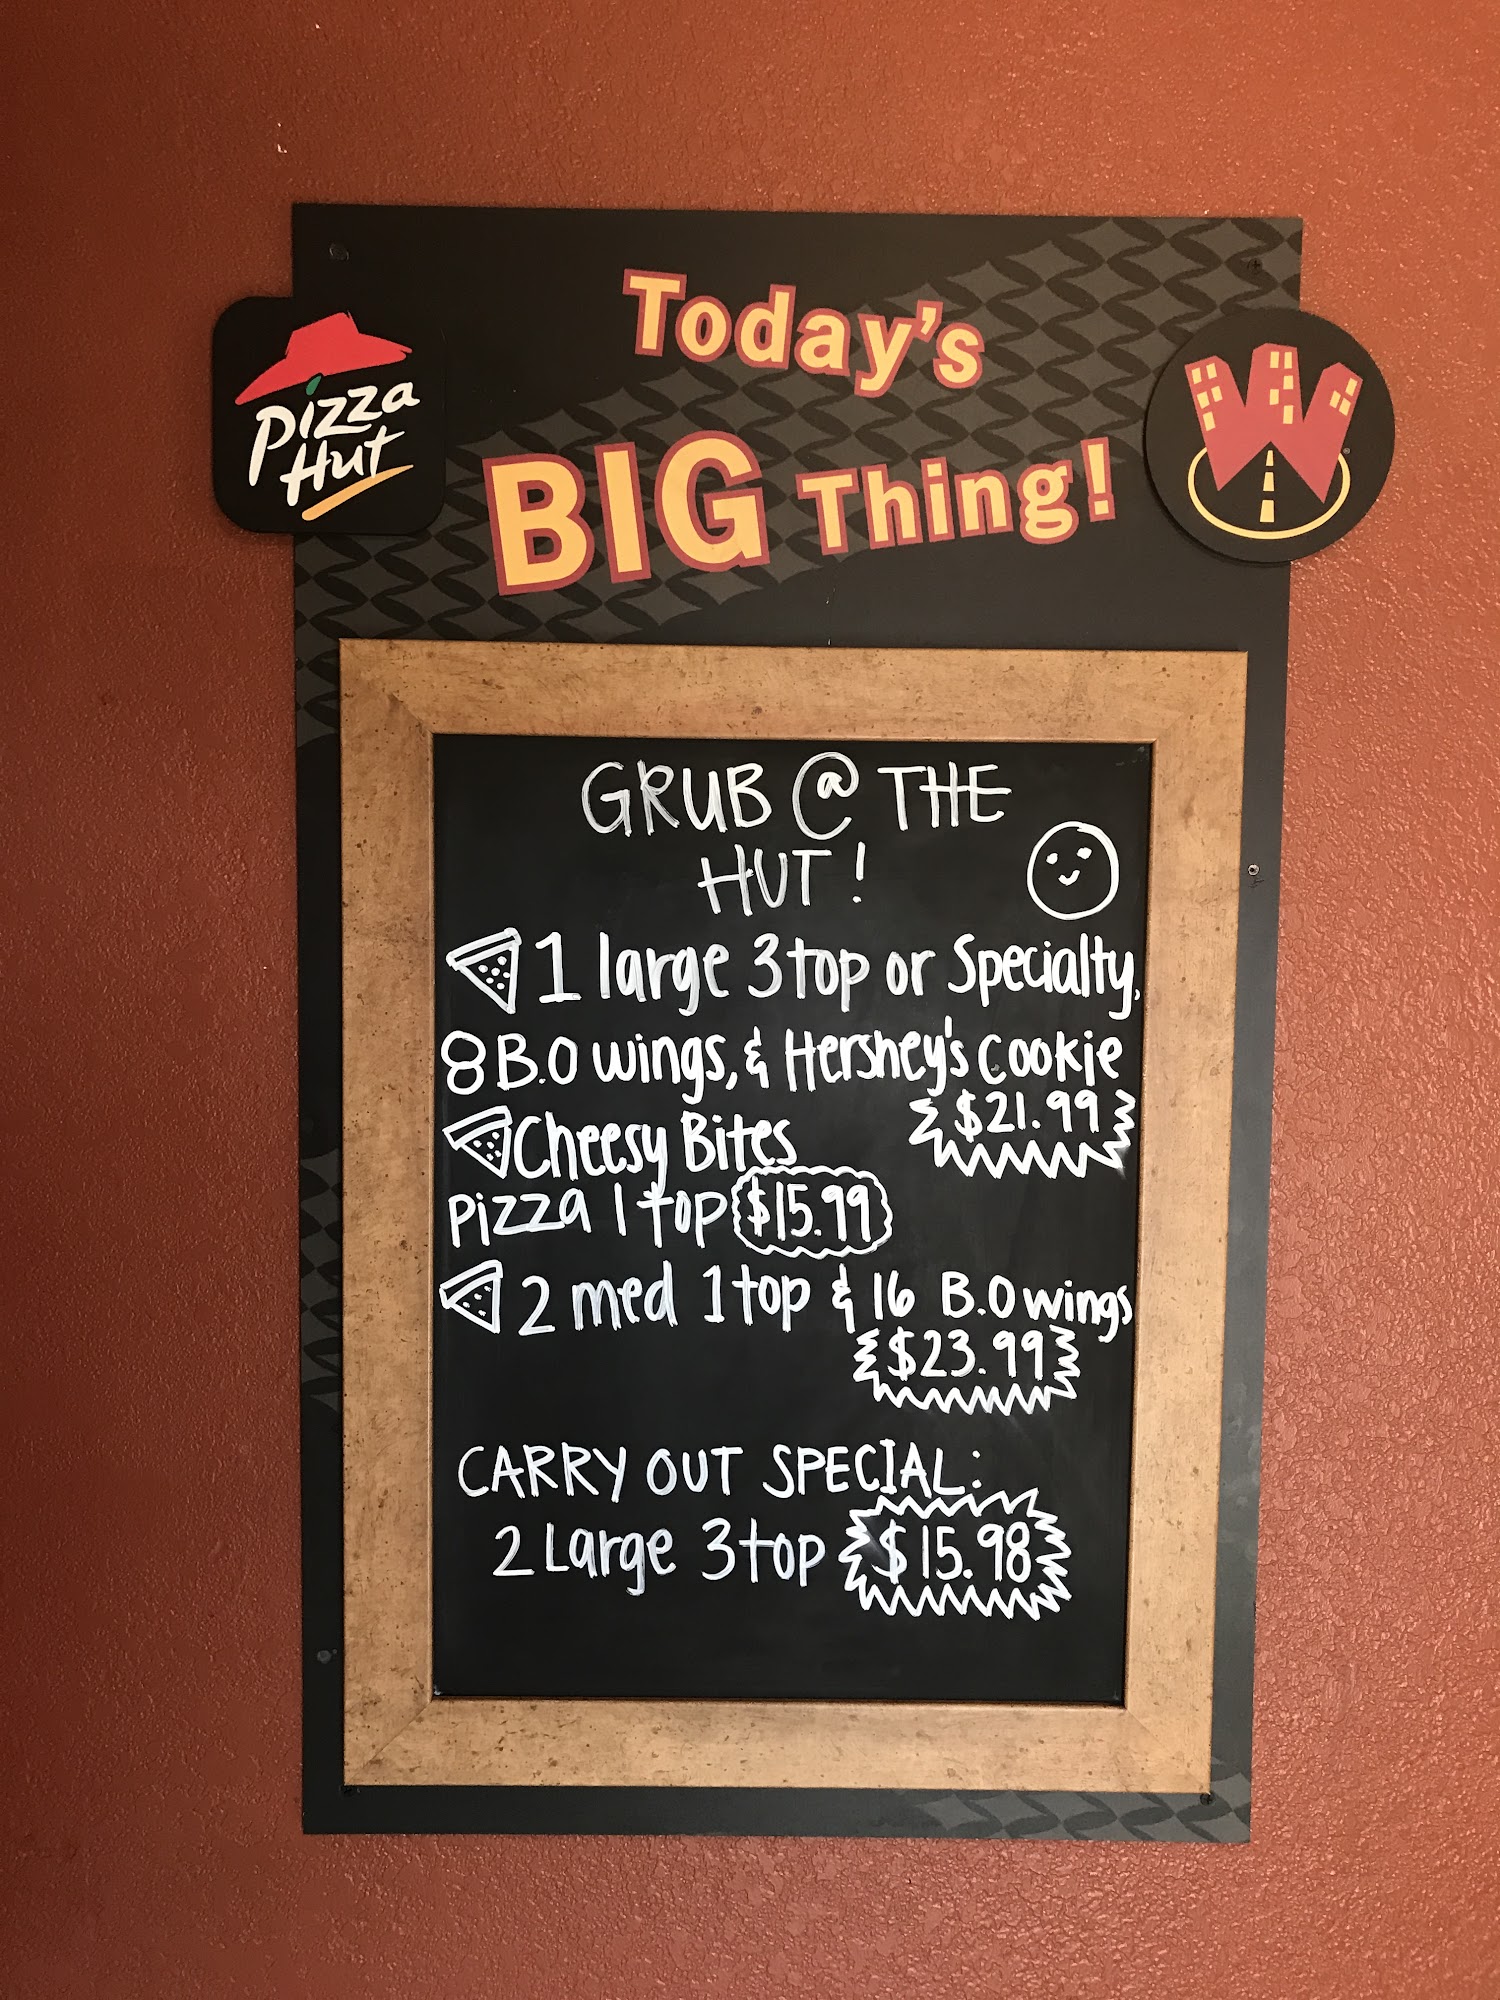 Today's
BIG Thing!
Pizza
Hut
W
GRUB @ THE
HUT!
1 large 3 top or Specialty,
8 B.O wings, & Hershey's Cookie
$21.99
Cheesy Bites
Pizza 1 top $15.99
2 med 1 top & 16 B.O wings
$23.99
CARRY OUT SPECIAL:
2 Large 3 top $15.98